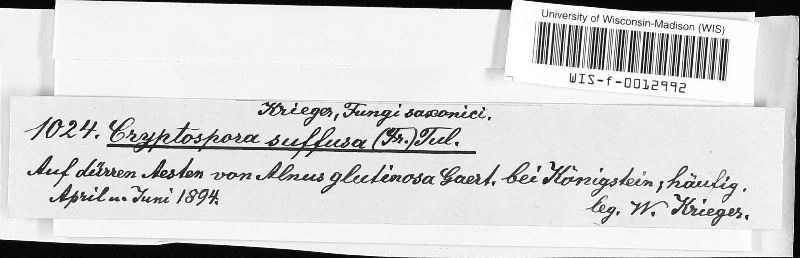 University of Wisconsin-Madison (WIS)
WIS-f-0012992
Krieger, Fungi saxonici.
1024. Cryptospora suffusa (Fr.) Tul.
Auf dürren Aesten von Alnus glutinosa Gaert. bei Königstein, häufig.
April u. Juni 1894.
leg. W. Krieger.